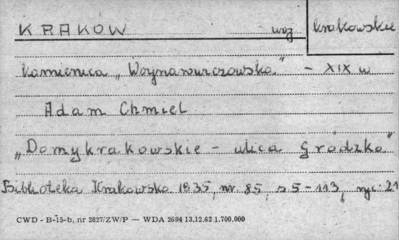 KRAKÓW woj. krakowskie
kamienica „Woynarowiczowska" – XIX w
Adam Chmiel
„Domy krakowskie – ulica Grodzka"
Biblioteka Krakowska 1935, nr. 85, s. 5 – 113, ryc. 21
CWD - B-15-b, nr 2827/ZW/P — WDA 2694 13.12.62 1.700.000